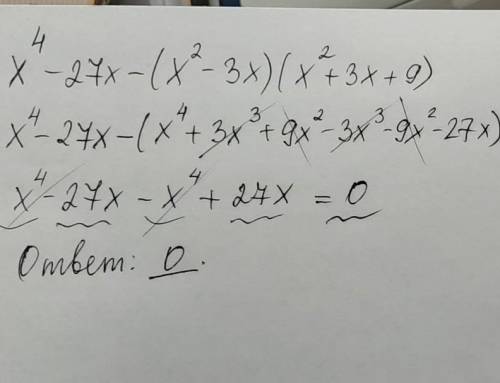 x⁴ - 27x - (x² - 3x)(x² + 3x + 9)
x⁴ - 27x - (x⁴ + 3x³ + 9x² - 3x³ - 9x² - 27x)
x⁴ - 27x - x⁴ + 27x = 0
Ответ: 0.